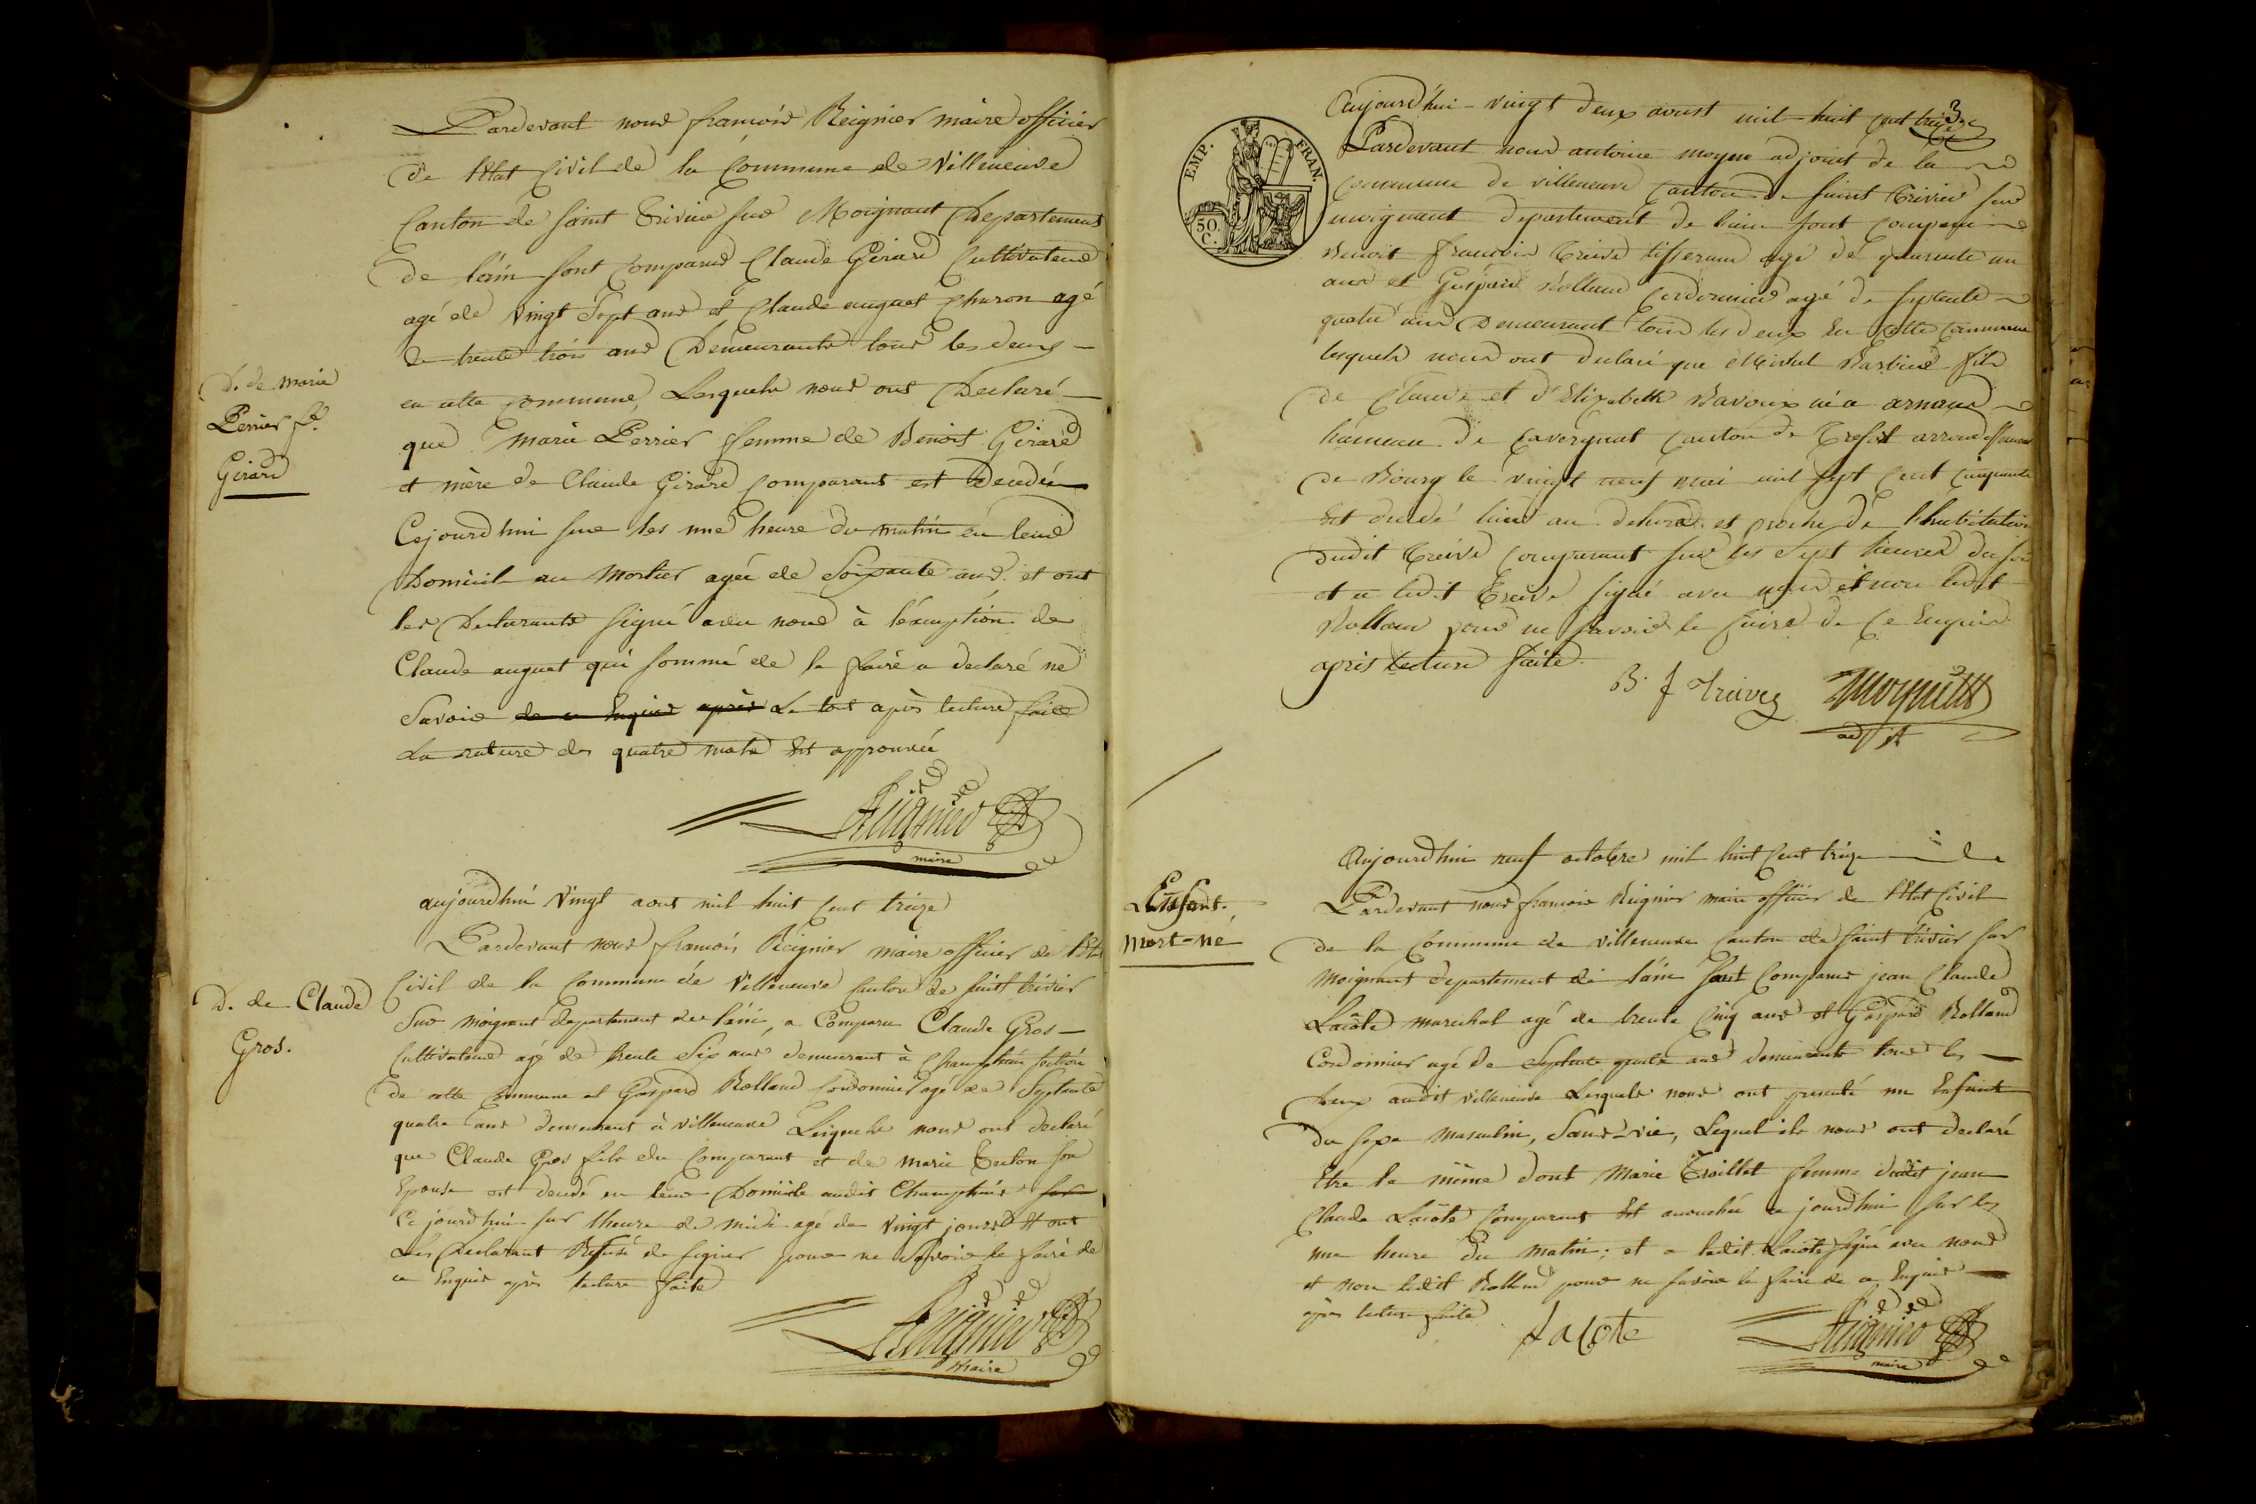 Pardevant nous françois Reignier maire officier
de l'Etat Civil de la Commune de Villeneuve
Canton de Saint Trivier sur Moignant Departement
de l'ain sont Comparus Claude Girard Cultivateur
agé de vingt Sept ans et Claude auguet Charon agé
de trente trois ans Demeurants tous les deux
en cette Commune, Lesquels nous ont Declaré
que Marie Perrier femme de Benoit Girard
et mère de Claude Girard Comparant est Decedée
Cejourdhui sur les une heure du matin en leur
Domicil au Mortier agée de Soixante ans et ont
les Declarants signé avec nous à l'éxeption de
Claude auguet qui sommé de le faire a declaré ne
Savoir de ce Enquis après Le tout après lecture faite
La rature des quatre mots Est approuvée
Reignier
maire
D. de marie
Perrier fe.
Girard
aujourdhui Vingt aout mil huit Cent treize
Pardevant nous françois Reignier maire officier de l'Etat
Civil de la Commune de Villeneuve Canton de saint trivier
Sur Moignant departement de l'ain, a Comparu Claude Gros
Cultivateur agé de trente Six ans demeurant à Champtein section
de cette Commune et Gaspard Rolland Cordonnier agé de Septante
quatre ans demeurant à villeneuve Lesquels nous ont declaré
que Claude Gros fils du Comparant et de marie Tuton son
Epouse est decedé en leur Domicile audit
Ce jourdhui sur l'heure de midi agé de Vingt jours Et ont
Les Declarant Refusé de signer pour ne Savoir le faire de
ce Enquis après lecture faite
Reignier
maire
D. de Claude
Gros.
3
EMP. FRAN.
50 C.
Aujourd'hui vingt deux aoust mil huit cent treize
Pardevant nous antoine moyne adjoint de la
commune de villeneuve canton de saint Trivier sur
moignant departement de l'ain sont comparu
Benoit François Treive tisserand agé de quarante un
ans et Gaspard Rolland Cordonnier agé de septente
quatre ans Demeurant tous les deux en cette Commune
lesquels nous ont declaré que Barbier fils
de Claude et d'Elizabeth Bavoux né a arnand
hameau de Caverynat canton de Trefort arrondissement
de Bourg le vingt neuf mai mil sept cent cinquante
Est decedé hier au dehors et proche de l'habitation
dudit Treive comparant sur les sept heures du soir
et a ledit Treive signé avec nous et non ledit
Rolland pour ne savoir le faire de Ce Enquis
apris lecture faite
B. f Treive
adjt
Aujourdhui neuf octobre mil huit Cent treize
Pardevant nous francois Reignier maire officier de l'Etat Civil
de la Commune de villeneuve Canton de saint trivier sur
Moignant departement de l'ain Sont Comparus jean Claude
Lacôte marechal agé de trente Cinq ans et Gaspard Rolland
Cordonnier agé de Septante quatre ans demeurants tous les
deux audit villeneuve Lesquels nous ont presenté un Enfant
du sexe Masculin, Sans vie, Lequel ils nous ont declaré
Etre le même dont Marie Troillet femme dudit jean
Claude Lacôte Comparant Est accouchée ce jourdhui sur les
une heure du matin; et a ledit Lacôte signé avec nous
et non ledit Rolland pour ne savoir le faire de ce Enquis
après lecture faite
Lacote
Reignier
maire
L'Enfant
mort-né